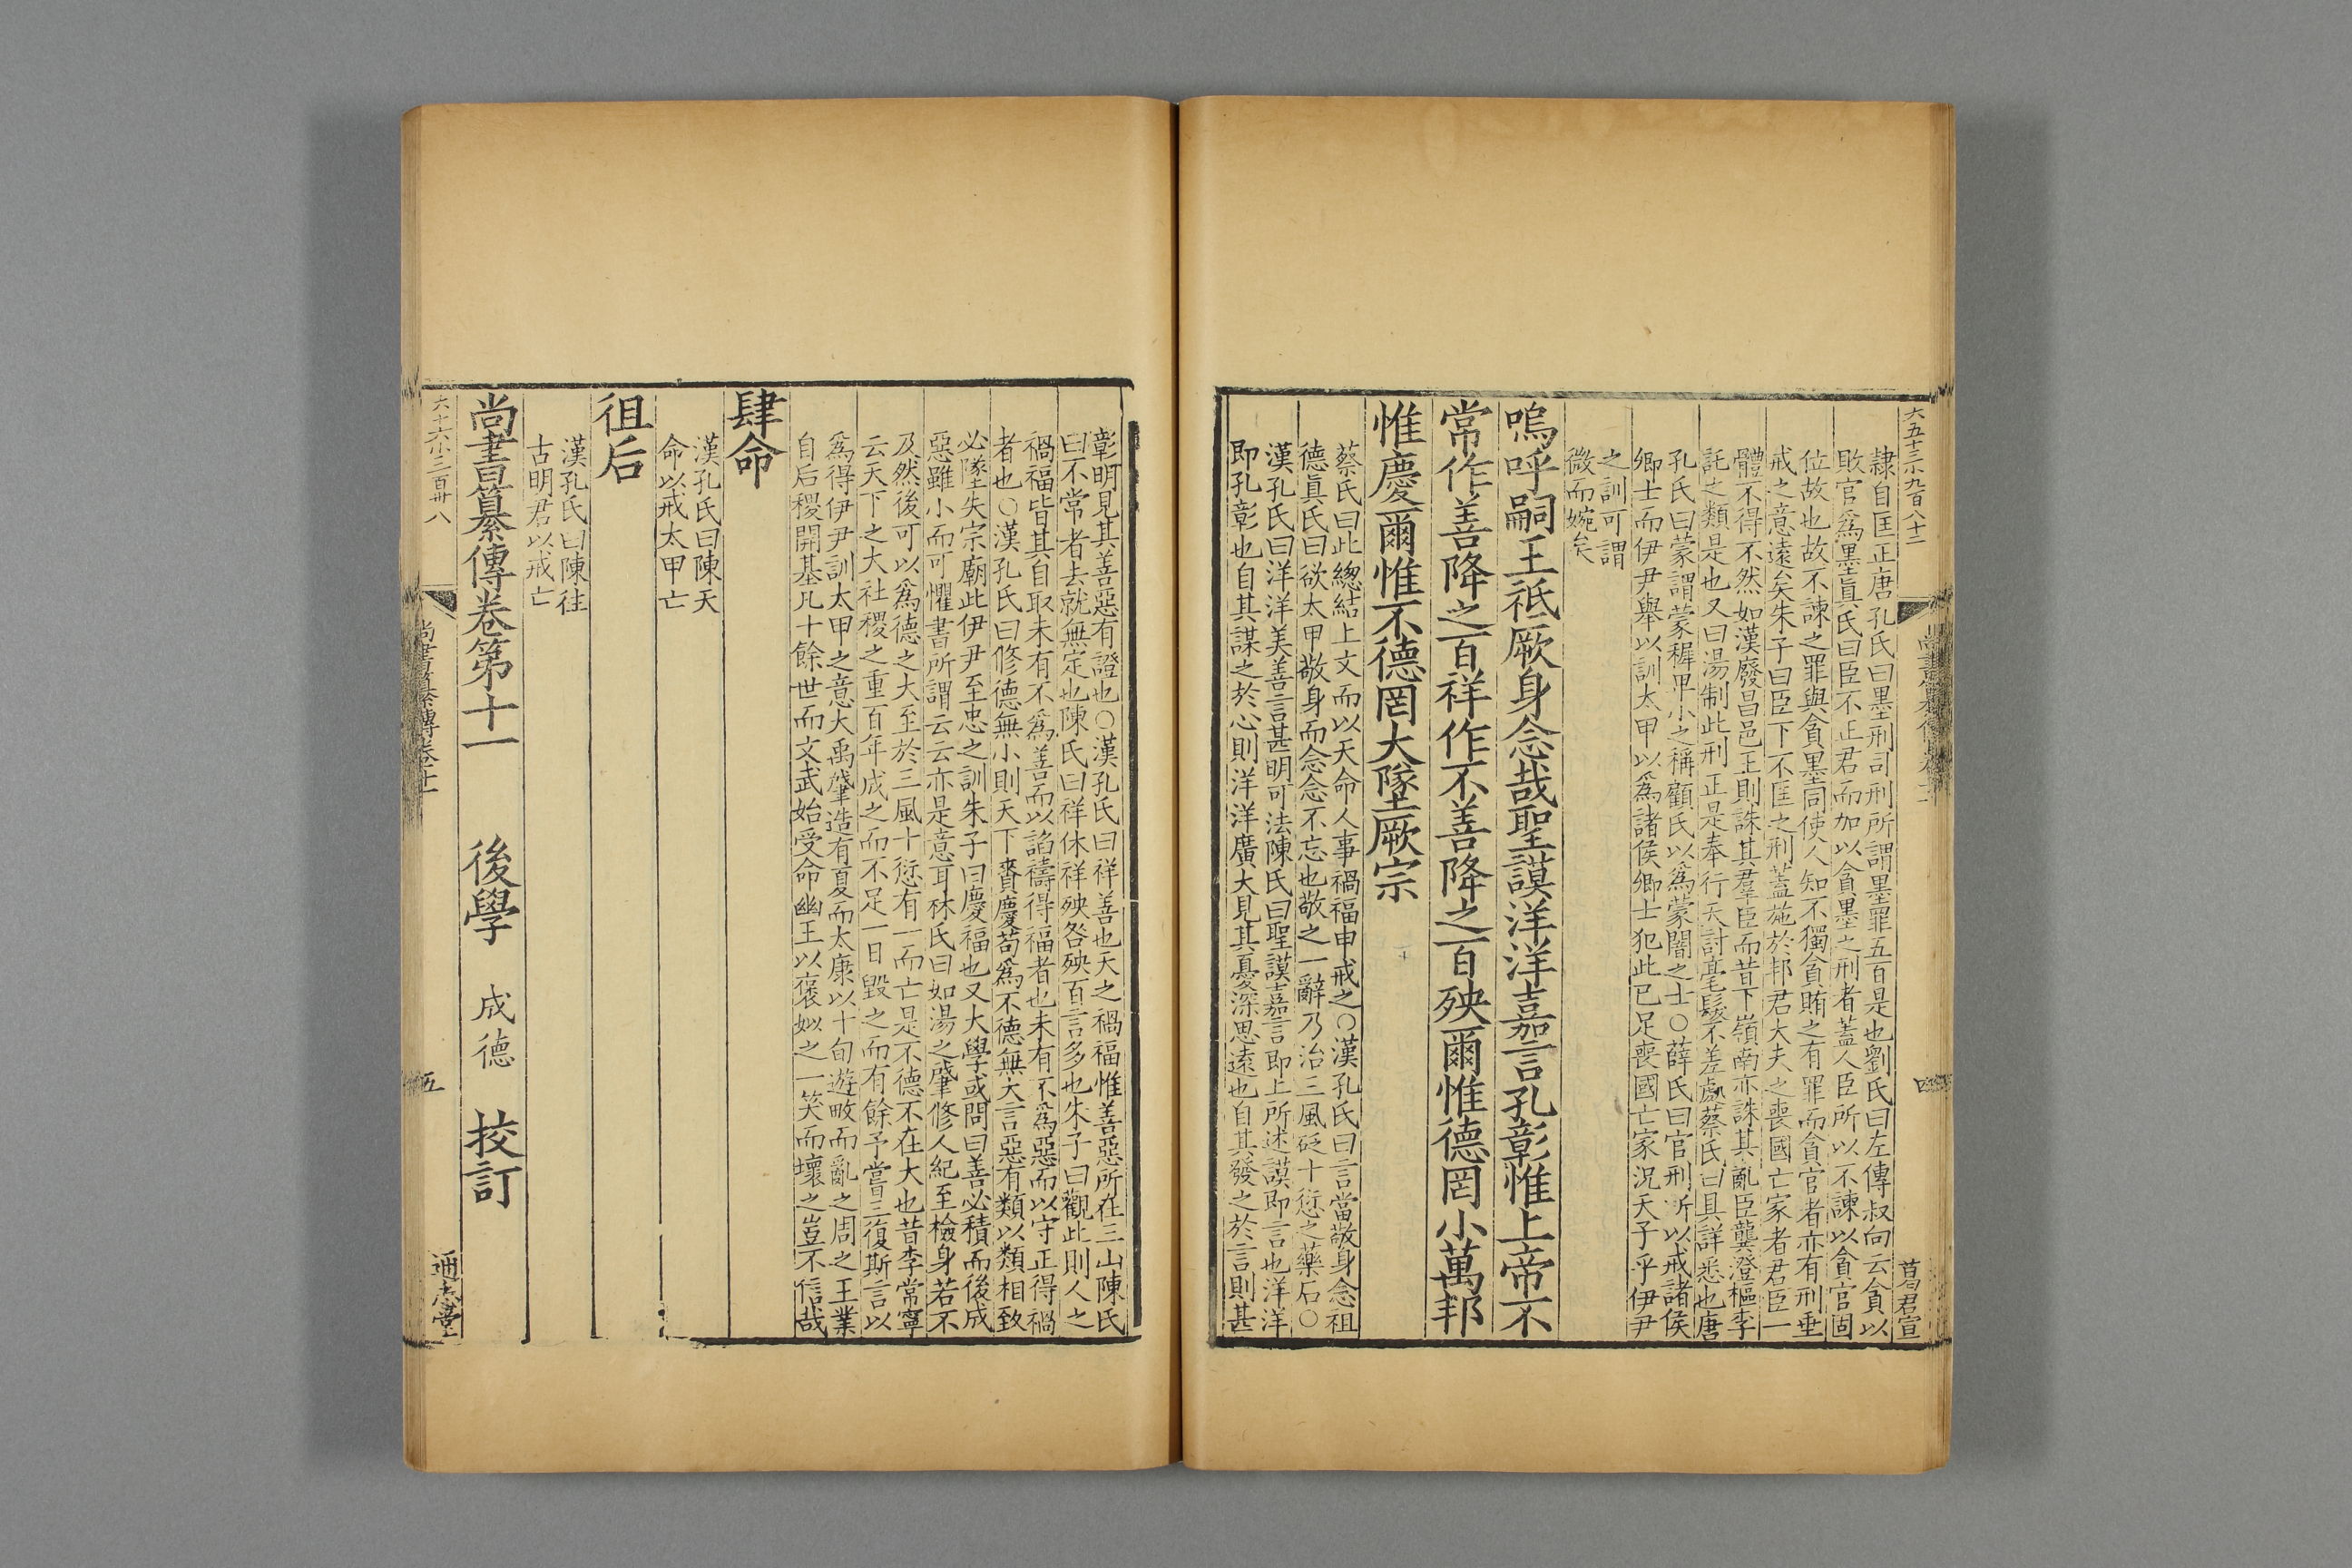 大五十三小九百八十二
尚書纂傳卷十一
四
莒君宣
隸自匡正唐孔氏曰墨刑司刑所謂墨罪五百是也劉氏曰左傳叔向云貪以
敗官爲墨眞氏曰臣不正君而加以貪墨之刑者蓋人臣所以不諫以貪官固
位故也故不諫之罪與貪墨同使人知不獨貪賄之有罪而貪官者亦有刑垂
戒之意遠矣朱子曰臣下不匡之刑蓋施於邦君大夫之喪國亡家者君臣一
體不得不然如漢廢昌邑王則誅其羣臣而昔下嶺南亦誅其亂臣龔澄樞李
託之類是也又曰湯制此刑正是奉行天討毫髮不差處蔡氏曰具詳悉也唐
孔氏曰蒙謂蒙穉卑小之稱顧氏以爲蒙闇之士○薛氏曰官刑所以戒諸侯
卿士而伊尹舉以訓太甲以爲諸侯卿士犯此已足喪國亡家況天子乎伊尹
之訓可謂
微而婉矣
嗚呼嗣王祇厥身念哉聖謨洋洋嘉言孔彰惟上帝不
常作善降之百祥作不善降之百殃爾惟德罔小萬邦
惟慶爾惟不德罔大墜厥宗
蔡氏曰此總結上文而以天命人事禍福申戒之○漢孔氏曰言當敬身念祖
德眞氏曰欲太甲敬身而念念不忘也敬之一辭乃治三風砭十愆之藥石○
漢孔氏曰洋洋美善言甚明可法陳氏曰聖謨嘉言即上所述謨即言也洋洋
即孔彰也自其謀之於心則洋洋廣大見其憂深思遠也自其發之於言則甚
彰明見其善惡有證也○漢孔氏曰祥善也天之禍福惟善惡所在三山陳氏
曰不常者去就無定也陳氏曰祥休祥殃咎殃百言多也朱子曰觀此則人之
禍福皆其自取未有不爲善而以諂禱得福者也未有不爲惡而以守正得禍
者也○漢孔氏曰修德無小則天下賚慶苟爲不德無大言惡有類以類相致
必墜失宗廟此伊尹至忠之訓朱子曰慶福也又大學或問曰善必積而後成
惡雖小而可懼書所謂云云亦是意耳林氏曰如湯之肇修人紀至檢身若不
及然後可以爲德之大至於三風十愆有一而亡是不德不在大也昔李常寧
云天下之大社稷之重百年成之而不足一日毀之而有餘予嘗三復斯言以
爲得伊尹訓太甲之意大禹肇造有夏而太康以十旬遊畋而亂之周之王業
自后稷開基凡十餘世而文武始受命幽王以褒姒之一笑而壞之豈不信哉
肆命
漢孔氏曰陳天
命以戒太甲亡
徂后
漢孔氏曰陳往
古明君以戒亡
尚書纂傳卷第十一 後學 成德 挍訂
六十六小三百卅八
尚書纂傳卷十一
五
通志堂